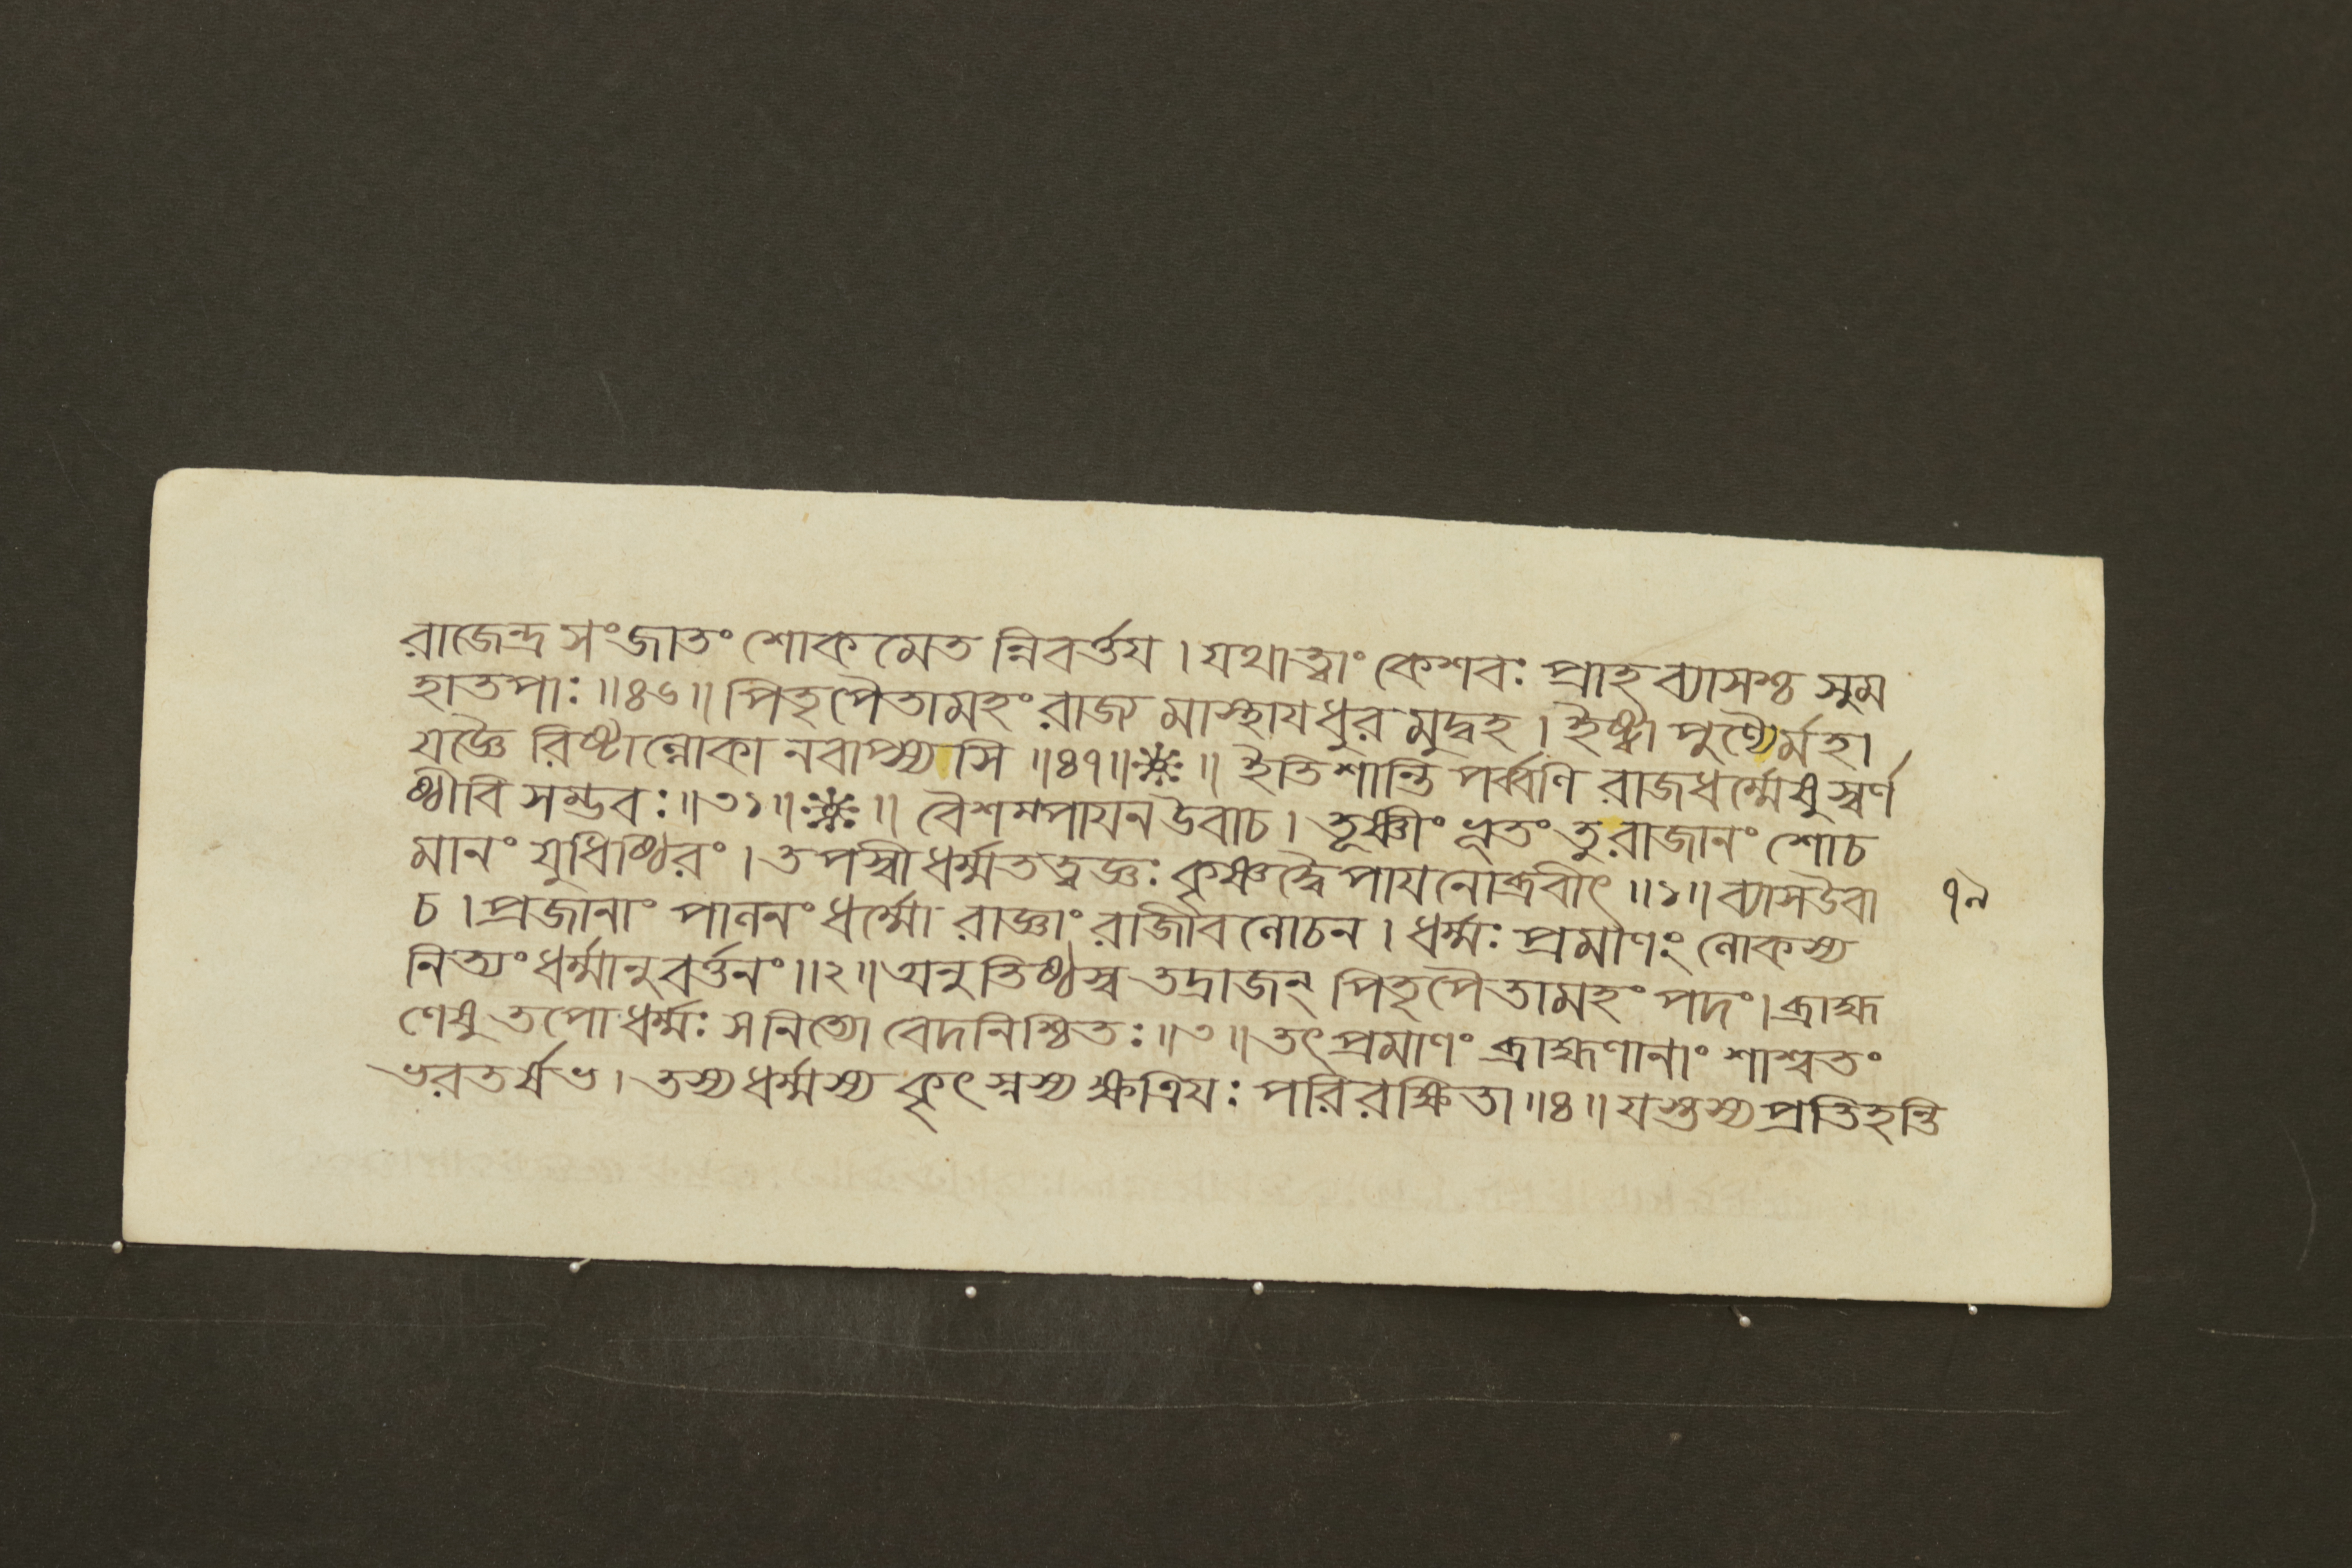 রাজেন্দ্র সংজাতং শোকমেতন্নিবর্ত্তয । যথাত্বাং কেশবঃ প্রাহ ব্যাসশ্চ সুম
হাতপাঃ ॥৪৬॥ পিতৃপৈতামহং রাজ্যমাস্থায ধুরমুদ্বহ । ইষ্ট্বা পুণ্যৈর্মহা
যজ্ঞৈরিষ্টাল্লোকানবাপ্স্যসি ॥৪৭॥❈॥ ইতি শান্তিপর্ব্বণি রাজধর্ম্মেষু স্বর্ণ
ষ্ঠীবিসম্ভবঃ ॥৩১॥❈॥ বৈশম্পাযন উবাচ । তূষ্ণীং ভূতং তু রাজানং শোচ
মানং যুধিষ্ঠিরং । তপস্বী ধর্ম্মতত্ত্বজ্ঞঃ কৃষ্ণদ্বৈপাযনোব্রবীৎ ॥১॥ ব্যাস উবা
চ । প্রজানাং পালনং ধর্ম্মো রাজ্ঞাং রাজীবলোচন । ধর্ম্মঃ প্রমাণং লোকস্য
নিত্যং ধর্ম্মানুবর্ত্তনং ॥২॥ অনুতিষ্ঠস্ব তদ্রাজন্ পিতৃপৈতামহং পদং । ব্রাহ্ম
ণেষু তপো ধর্ম্মঃ স নিত্যো বেদনিশ্চিতঃ ॥৩॥ তৎ প্রমাণং ব্রাহ্মণানাং শাশ্বতং
ভরতর্ষভ । তস্য ধর্ম্মস্য কৃৎস্নস্য ক্ষত্রিযঃ পরিরক্ষিতা ॥৪॥ যস্তস্য প্রতিহন্তি